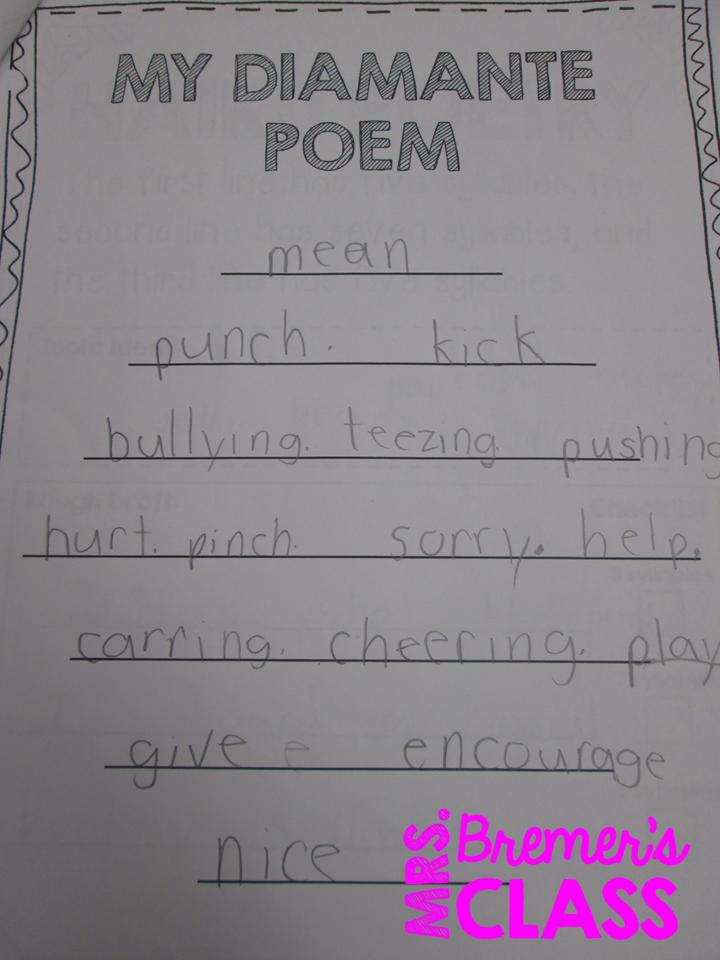 MY DIAMANTE
POEM
mean
punch. kick
bullying. teezing. pushing
hurt. pinch. sorry. help.
carring. cheering. play
give e encourage
nice
MRS. Bremer's
CLASS